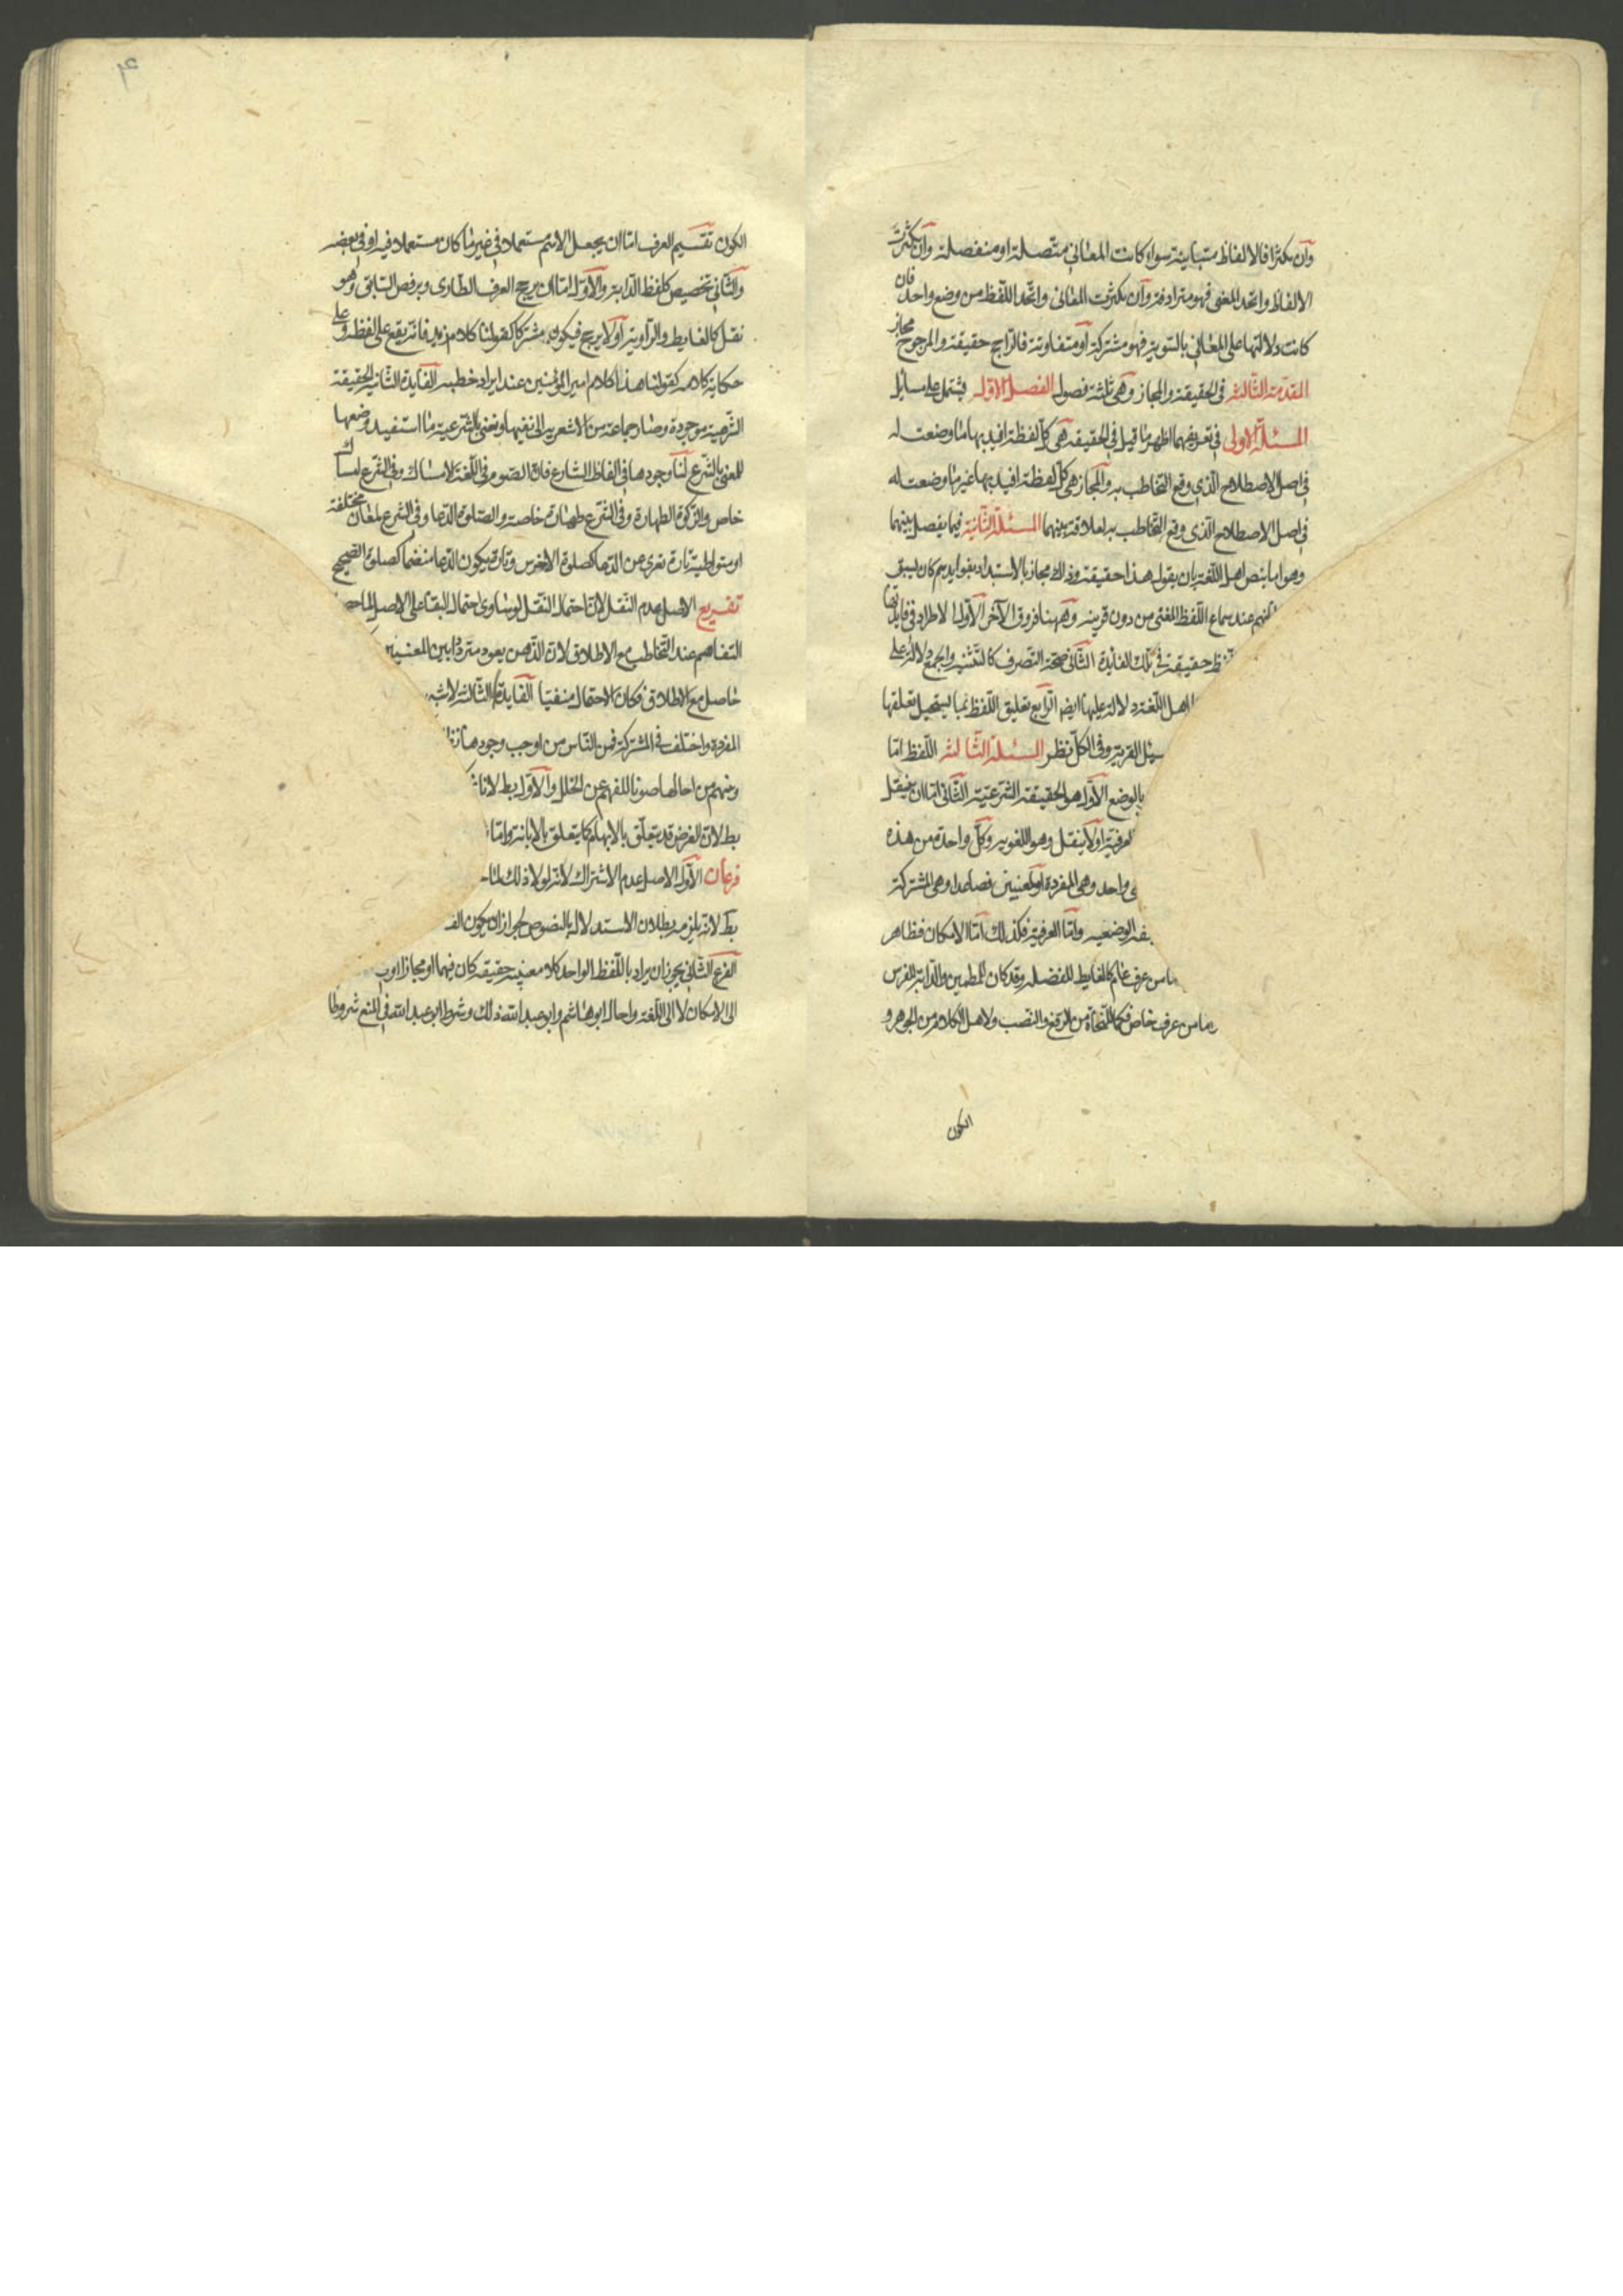 وان تكثرا فالالفاظ متباينة سواء كانت المعاني متصلة او منفصلة وان تكثرت
الالفاظ واتحد المعنى فهو مترادفة وان تكثرت المعاني واتحد اللفظ من وضع واحد فان
كانت دلالتها على المعاني بالسوية فهو مشتركة او متفاوتة فالراجح حقيقة والمرجوح مجاز
المقدمة الثالثة في الحقيقة والمجاز وهي ثلثة فصول الفصل الاول يشتمل على مسايل
المسئلة الاولى في تعريفهما اظهر ما قيل في الحقيقة هي كل لفظة افيد بها ما وضعت له
في اصل الاصطلاح الذي وقع التخاطب به والمجاز هي كل لفظة افيد بها غير ما وضعت له
في اصل الاصطلاح الذي وقع التخاطب به لعلاقة بينهما المسئلة الثانية فيما يفصل بينهما
وهو اما بنص اهل اللغة بان يقول هذا حقيقة وذاك مجاز بالاستبداد بفوايدهم كان يسبق
عند سماع اللفظ المعنى من دون قرينة وههنا فروق الآخر الاول الاطراد في فايدتها
حقيقة في تلك الفايدة الثاني صحة التصرف كالتثنية والجمع دلالة على
اهل اللغة دلالة عليها ايضا الرابع تعليق اللفظ بما يستحيل تعلقها
سيل القرية وفي الكل نظر المسئلة الثالثة اللفظ اما
بالوضع الاول هو الحقيقة الشرعية الثاني اما ان ينتقل
العرفية او لا ينتقل وهو اللغوية وكل واحدة من هذه
واحد وهي المفردة او لمعنيين فصاعدا وهي المشتركة
الوضعية واما العرفية فكذلك اما الامكان فظاهر
من عرف عام كالغايط للفضلة وقد كان للمطمين والدابة للفرس
من عرف خاص فكما للنحاة من الرفع والنصب ولاهل الكلام من الجوهر و
الكون
۴
الكون تقسيم العرف اما ان يجعل الاسم مستعملا في غير ما كان مستعملا فيه او في بعضه
والثاني تخصيص كلفظ الدابة والاول اما ان يرجح العرف الطاري ويرفض السابق وهو
نقل كالغايط والراوية او لا يرجح فيكون مشتركا كقولنا كلام زيد فانه يقع على لفظه وعلى
حكاية كلامه كقولنا هذا كلام امير المؤمنين عند ايراد خطبه الفايدة الثانية الحقيقة
الشرعية موجودة وصار جماعة من الاشعرية الى نفيها ونعني بالشرعية ما استفيد وضعها
للمعنى بالشرع لنا وجودها في الفاظ الشارع فان الصوم في اللغة الامساك وفي الشرع امساك
خاص والزكوة الطهارة وفي الشرع طهارة خاصة والصلوة الدعا وفي الشرع لمعان مختلفة
او متواطية تارة تعرى عن الدعا كصلوة الاخرس وتارة يكون الدعا منضما كصلوة الصحيح
تفريع الاصل عدم النقل لان احتمال النقل لو ساوى احتمال البقا على الاصل لما حصل
التفاهم عند التخاطب مع الاطلاق لان الذهن يعود مترددا بين المعنيين
حاصل مع الاطلاق فكان الاحتمال منفيا الفايدة الثالثة لا شبهة
المفردة واختلف في المشتركة فمن الناس من اوجب وجودها
ومنهم من احالها صونا للفهم عن الخلل والاول بط لانا
بط لان الغرض قد يتعلق بالابهام كما يتعلق بالابانة واما
فرعان الاول الاصل عدم الاشتراك لانه لولا ذلك لما
بط لانه يلزم بطلان الاستدلال بالنصوص لجواز ان يكون
الفرع الثاني يجوز ان يراد باللفظ الواحد كلا معنييه حقيقة كان فيهما او مجازا
الى الامكان لا الى اللغة واحال ابو هاشم وابو عبد الله ذلك وشرط ابو عبد الله في المنع شروطا